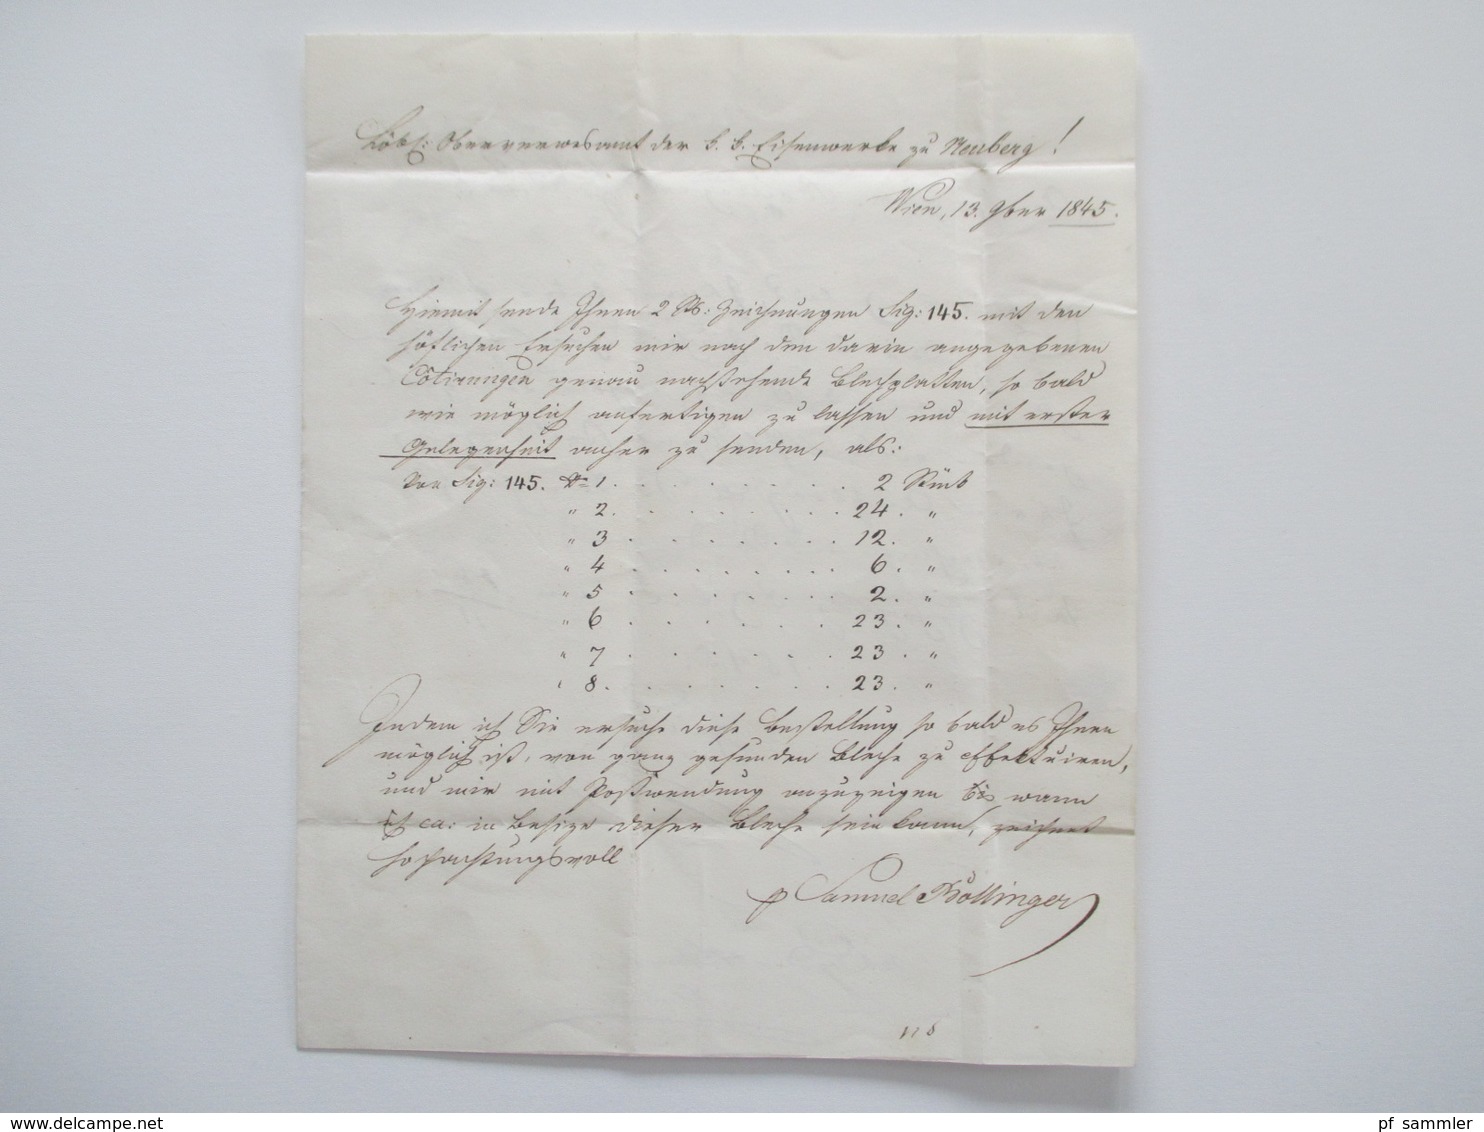 Löbl: Oberverwesamt der k. k. Eisenwerke zu Neuberg!
Wien, 13. 9ber 1845.
Hiemit sende Ihnen 2 Stk: Zeichnungen Fig: 145. mit dem
höflichen Ersuchen mir nach den darin angegebenen
Côtirungen genau nachstehende Blechplatten, so bald
wie möglich anfertigen zu lassen und mit erster
Gelegenheit anher zu senden, als:
Von Fig: 145. No 1. . . . . . . . . 2 Stück
" 2. . . . . . . . . 24. "
" 3 . . . . . . . . 12. "
" 4 . . . . . . . . 6. "
" 5 . . . . . . . . 2. "
" 6 . . . . . . . 23. "
" 7 . . . . . . . 23. "
" 8. . . . . . . . 23. "
Indem ich Sie ersuche diese Bestellung so bald es Ihnen
möglich ist, von ganz gesunden Bleche zu effektuiren,
und mir mit Postwendung anzuzeigen bis wann
ich ca: in Besize dieser Bleche sein kann, zeichnet
hochachtungsvoll
p Samuel Bollinger
118
www.delcampe.net
pf_sammler